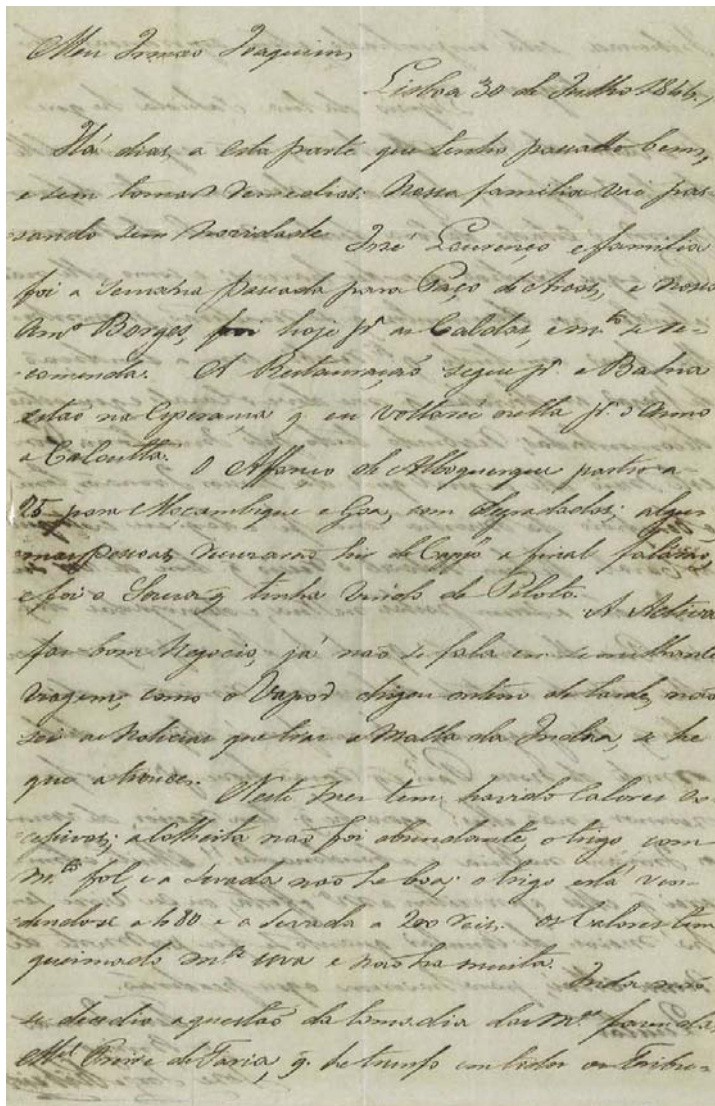 Meu Irmão Joaquim,
Lisboa 30 de Julho 1844,,
Há dias, a esta parte que tenho passado bem,
e sem tomar remedios: Nossa familia vai pas-
sando sem novidade. José Lourenço e familia
foi a semana passada para Paço de Arcos, e nosso
Amº Borges, foi hoje pª as Caldas, e m.to se re-
comenda. A Restauração segue pª a Bahia
estão na Esperança q eu voltarei nella pª o Anno
a Calcutta. O Affonso de Albuquerque partio a
25 para Moçambique e Goa, com degradados; algu-
mas pessoas recusarão hir de Capp.am a final
e foi o Souza q tinha vindo de Piloto. A Activa
faz bom Negocio, já não se fala em semilhante
viagem, como o Vapor chegou ontem de tarde, não
sei as Noticias que traz a Malla da India, se he
que a trouce. Neste mez tem havido Calores ex-
cessivos; a Colheita não foi abundante, o trigo com
m.to fol, e a Sevada não he boa; o trigo está ven-
dendose a 480 e a Sevada a 200 reis. Os Calores tem
queimado m.ta uva e não ha muita. Inda não
se decedio a questão da da
M.el de Faria, q. de todos os Tribu-